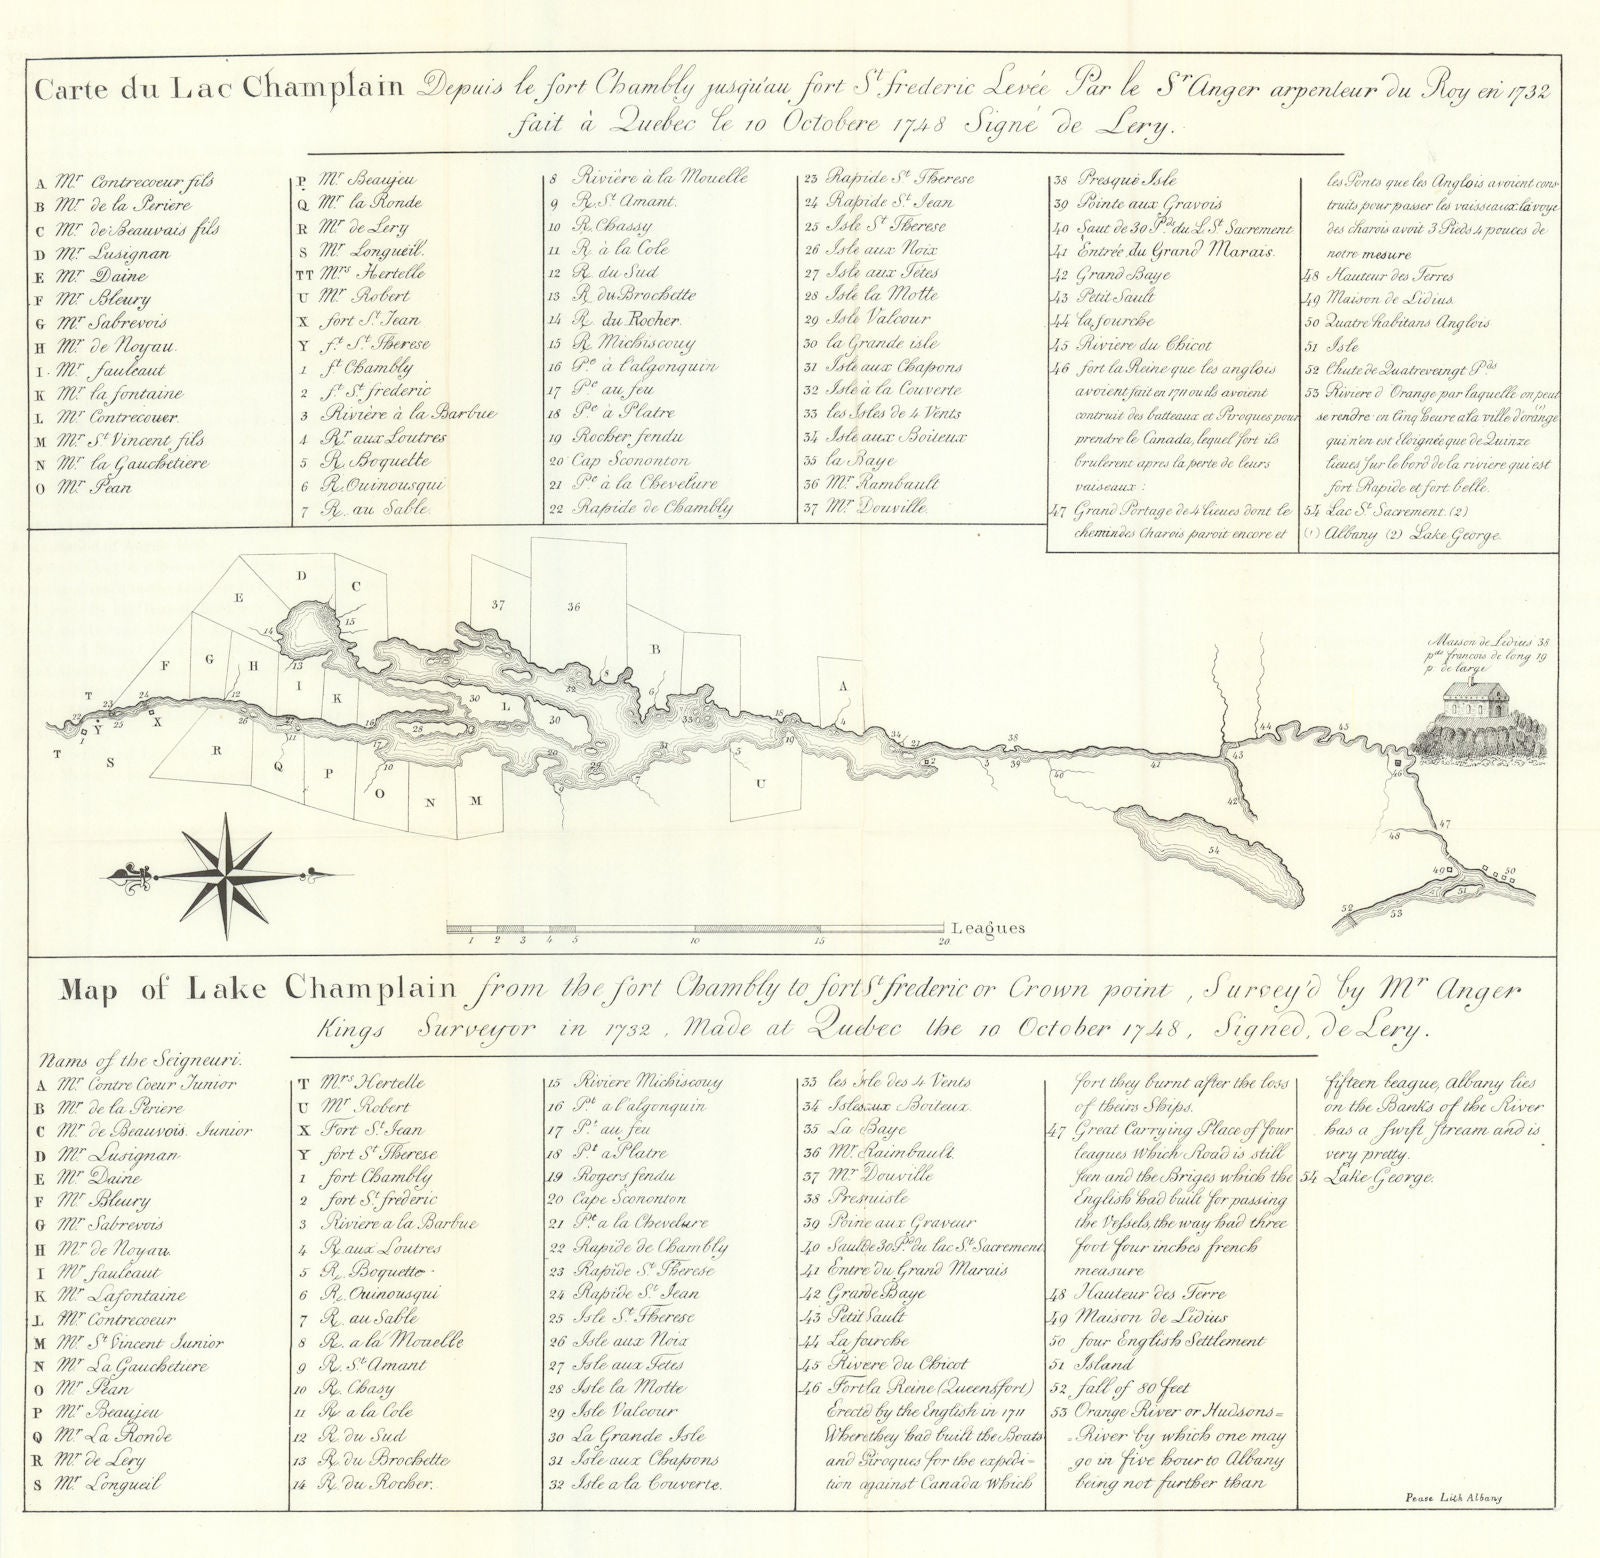 Carte du Lac Champlain Depuis le fort Chambly jusqu'au fort St. frederic Levée Par le Sr. Anger arpenteur du Roy en 1732
fait à Quebec le 10 Octobere 1748 Signé de Lery.
A Mr. Contrecoeur fils
B Mr. de la Periere
C Mr. de Beauvais fils
D Mr. Lusignan
E Mr. Daine
F Mr. Bleury
G Mr. Sabrevois
H Mr. de Noyau.
I. Mr. fauleaut
K Mr. la fontaine
L Mr. Contrecouer.
M Mr. St. Vincent fils
N Mr. la Gauchetiere
O Mr. Pean
P Mr. Beaujeu
Q Mr. la Ronde
R Mr. de Lery
S Mr. Longueil.
TT Mrs. Hertelle
U Mr. Robert
X fort St. Jean
Y ft. St. Therese
1 ft. Chambly
2 ft. St. frederic
3 Rivière à la Barbue
4 Rr. aux Loutres
5 R. Boquette
6 R. Ouinousqui
7 R. au Sable
8 Rivière à la Mouelle
9 R. St. Amant.
10 R. Chassy
11 R. à la Cole
12 R. du Sud
13 R. du Brochette
14 R. du Rocher.
15 R. Michiscouy
16 Pte. à l'algonquin
17 Pte. au feu
18 Pte. à Platre
19 Rocher fendu
20 Cap Scononton
21 Pte. à la Chevelure
22 Rapide de Chambly
23 Rapide St. Therese
24 Rapide St. Jean
25 Isle St. Therese
26 Isle aux Noix
27 Isle aux Fetes
28 Isle la Motte
29 Isle Valcour
30 la Grande isle
31 Isle aux Chapons
32 Isle à la Couverte
33 les Isles de 4 Vents
34 Isle aux Boiteux
35 la Baye
36 Mr. Rambault
37 Mr. Douville.
38 Presque Isle
39 Pointe aux Gravois
40 Saut de 30 Pds. du L St. Sacrement
41 Entrée du Grand Marais.
42 Grand Baye
43 Petit Sault
44 la fourche
45 Riviere du Chicot
46 fort la Reine que les anglois
avoient fait en 1711 ou ils avoient
contruit des batteaux et Piroques pour
prendre le Canada, lequel fort ils
brulerent apres la perte de leurs
vaiseaux :
47 Grand Portage de 4 lieues dont le
chemindes Charois paroit encore et
les Ponts que les Anglois avoient cons
truits pour passer les vaisseaux: la voye
des charois avoit 3 Pieds 4 pouces de
notre mesure
48 Hauteur des Terres
49 Maison de Lidius
50 Quatre habitans Anglois
51 Isle
52 Chute de Quatreveingt Pds
53 Riviere d Orange par laquelle on peut
se rendre en Cinq heure a la ville d'orange (1)
qui n'en est Eloignée que de Quinze
lieues sur le bord de la riviere qui est
fort Rapide et fort belle.
54 Lac St. Sacrement. (2)
(1) Albany (2) Lake George.
Maison de Lidius 38
pds francois de long 19
p. de large
D C E 14 15 37 36 F G H 13 B A
I K 30 L 32 8 6 33
T 24 12 16 28 30 18 4 34 21 38 44 45
22 23 25 X 26 27 11 17 20 29 31 19 2 39 41 43 46
1 Y T S R Q P 10 O N M 9 7 5 U 5 40 42
54 48 47 49 50 51 52 53
1 2 3 4 5 10 15 20 Leagues
Map of Lake Champlain from the fort Chambly to fort St. frederic or Crown point, Survey'd by Mr Anger
Kings Surveyor in 1732, Made at Quebec the 10 October 1748, Signed, de Lery.
Nams of the Seigneuri.
A Mr Contre Coeur Junior
B Mr. de la Periere
C Mr. de Beauvois. Junior
D Mr. Lusignan
E Mr. Daine
F Mr. Bleury
G Mr. Sabrevois
H Mr. de Noyau.
I Mr fauleaut
K Mr. Lafontaine
L Mr. Contrecoeur
M Mr. St Vincent Junior
N Mr. La Gauchetiere
O Mr. Pean
P Mr. Beaujeu
Q Mr. La Ronde
R Mr. de Lery
S Mr. Longueil
T Mrs. Hertelle
U Mr Robert
X Fort St. Jean
Y fort St Therese
1 fort Chambly
2 fort St. frederic
3 Riviere a la Barbue
4 R. aux Loutres
5 R. Boquette
6 R. Ouinousqui
7 R. au Sable
8 R. a la Mouelle
9 R. St. Amant
10 R. Chasy
11 R. a la Cole
12 R. du Sud
13 R. du Brochette
14 R. du Rocher.
15 Riviere Michiscouy
16 Pt. a l'algonquin
17 Pt. au feu
18 Pt. a Platre
19 Rogers fendu
20 Cape Scononton
21 Pt. a la Chevelure
22 Rapide de Chambly
23 Rapide St. Therese
24 Rapide St. Jean
25 Isle St. Therese
26 Isle aux Noix
27 Isle aux Fetes
28 Isle la Motte
29 Isle Valcour
30 La Grande Isle
31 Isle aux Chapons
32 Isle a la Couverte.
33 les isle des 4 Vents
34 Isles aux Boiteux.
35 La Baye
36 Mr. Raimbault.
37 Mr Douville
38 Presuisle
39 Poine aux Graveur
40 Saulde 30 Pd. du lac St. Sacrement
41 Entre du Grand Marais
42 Grande Baye
43 Petit Sault
44 La fourche
45 Rivere du Chicot
46 Fort la Reine (Queensfort)
Erected by the English in 1711
Where they had built the Boats
and Piroques for the expedi-
tion against Canada Which
fort they burnt after the loss
of theirs Ships.
47 Great Carrying Place of four
leagues Which Road is still
seen and the Briges which the
English had built for passing
the Vessels, the way had three
foot four inches french
measure
48 Hauteur des Terre
49 Maison de Lidius
50 four English Settlement
51 Island
52 fall of 80 feet
53 Orange River or Hudsons=
=River by which one may
go in five hour to Albany
being not further than
fifteen league, Albany lies
on the Banks of the River
has a swift stream and is
very pretty.
54 Lake George.
Pease Lith Albany